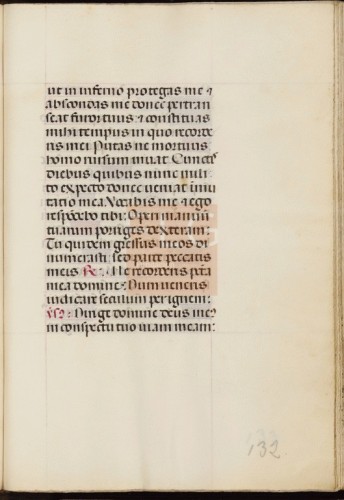 ut in inferno protegas me ⁊
abscondas me donec pertran
seat furor tuus ⁊ constituas
mihi tempus in quo recorde
ris mei Putas ne mortuus
homo rursum vivat Cunctis
diebus quibus nunc mili
to expecto donec veniat imu
tatio mea Vocabis me ⁊ ego
respōdebo tibi: Operi manuū
tuarum porriges dexteram:
Tu quidem gressus meos di
numerasti sed parce peccatis
meis ℟. Ne recorderis pctā
mea domine: Dum veneris
iudicare seculum per ignem:
Dirige domine deus me
in conspectu tuo viam meam:
132